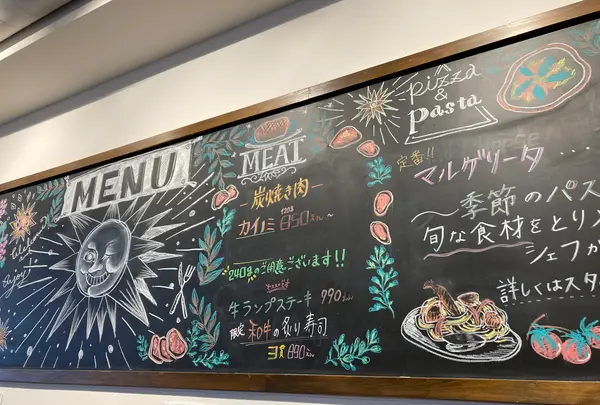 enjoy!
MENU
MEAT
炭焼き肉
カイノミ 850えん〜
240gのご用意ございます!!
牛ランプステーキ 990
限定 和牛の炙り寿司
2貫 890えん
pizza
&
pasta
定番!!
マルゲリータ ....
季節のパス
旬な食材をとり
シェフが
詳しくはスタ